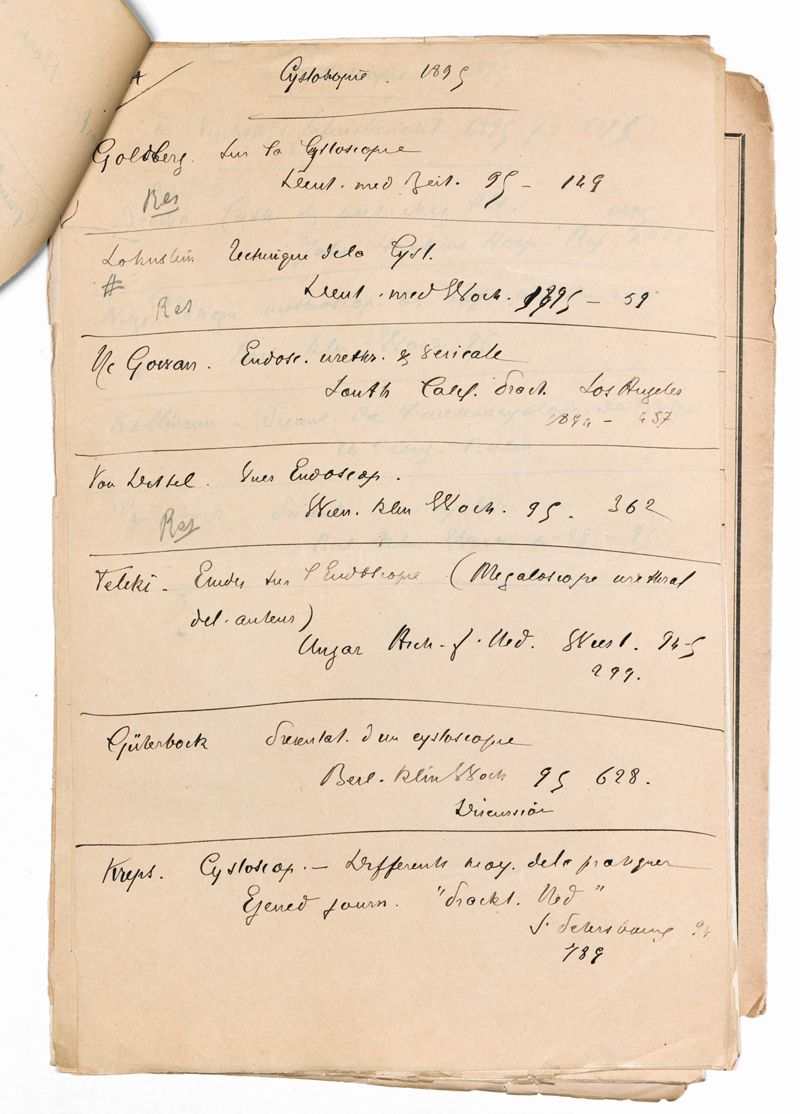 Cystoscopie . 1895
Goldberg. Sur la Cystoscopie
Deut. med Zeit. 95 – 149
Res
Lohnstein Technique de la Cyst.
# Deut. med Woch. 1895 – 59
Res
Mc Gowan. Endosc. urethr. & vesicale
South Calif. Pract. Los Angeles
1894 – 457
Von Dittel. Endoscop.
Wien. klin Woch. 95. 362
Res
Teleki – Etudes sur l'Endoscopie (Megaloscope urethral
del. auteur)
Ungar Arch. f. Med. Wiesb. 94-5
299.
Güterbock Presentat. d'un cystoscope
Berl. klin Woch 95 628.
Discussion
Kreps. Cystoscop. – Differents moy. de la pratiquer
Ejened journ. "Prackt. Med"
S. Petersbourg 94
789